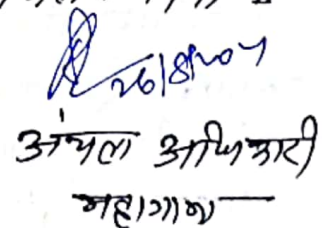 26/8/2004
अंचल अधिकारी
महागामा